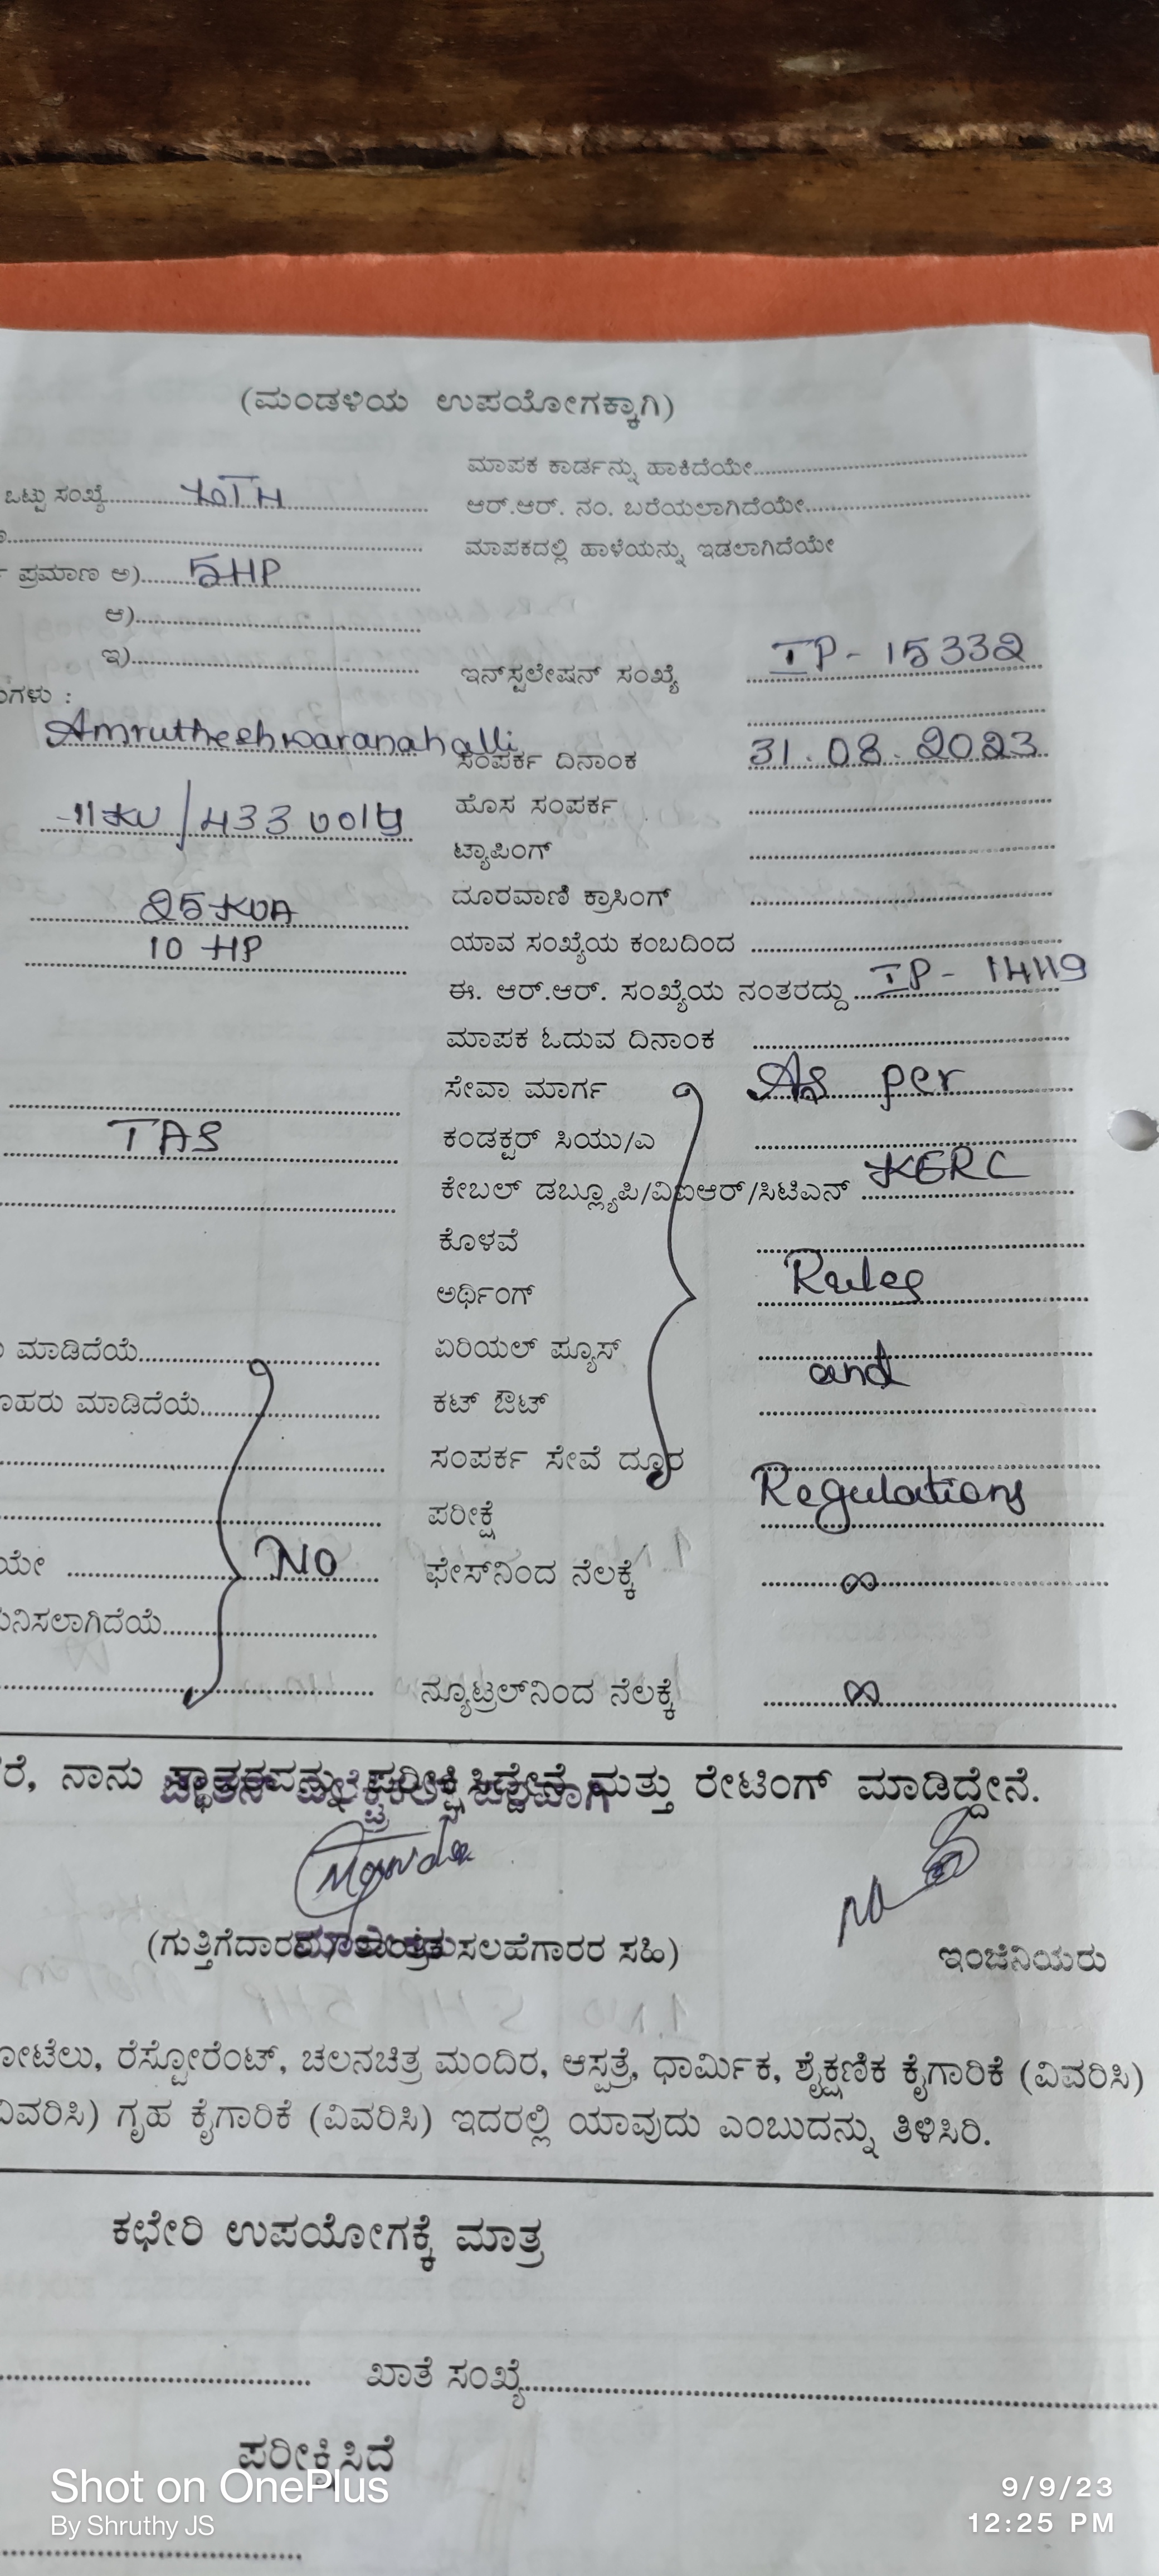 (ಮಂಡಳಿಯ ಉಪಯೋಗಕ್ಕಾಗಿ)
ಒಟ್ಟು ಸಂಖ್ಯೆ
ಪ್ರಮಾಣ ಅ) 5HP
ಆ)
ಇ)
ಗಳು :
Amrutheshwaranahalli
11KV / 433 volts
25 KVA
10 HP
TAS
ಮಾಡಿದೆಯೆ
ಮಾಡಿದೆಯೆ
ಯೇ NO
ಮಾಪಕ ಕಾರ್ಡನ್ನು ಹಾಕಿದೆಯೇ
ಆರ್.ಆರ್. ನಂ. ಬರೆಯಲಾಗಿದೆಯೇ
ಮಾಪಕದಲ್ಲಿ ಹಾಳೆಯನ್ನು ಇಡಲಾಗಿದೆಯೇ
ಇನ್‌ಸ್ಟಲೇಷನ್ ಸಂಖ್ಯೆ IP - 15332
ಸಂಪರ್ಕ ದಿನಾಂಕ 31.08.2023
ಹೊಸ ಸಂಪರ್ಕ
ಟ್ಯಾಪಿಂಗ್
ದೂರವಾಣಿ ಕ್ರಾಸಿಂಗ್
ಯಾವ ಸಂಖ್ಯೆಯ ಕಂಬದಿಂದ
ಈ. ಆರ್.ಆರ್. ಸಂಖ್ಯೆಯ ನಂತರದ್ದು IP -
ಮಾಪಕ ಓದುವ ದಿನಾಂಕ
ಸೇವಾ ಮಾರ್ಗ As per
ಕಂಡಕ್ಟರ್ ಸಿಯು/ಎ
ಕೇಬಲ್ ಡಬ್ಲ್ಯೂಪಿ/ವಿಐಆರ್/ಸಿಟಿಎನ್ KERC
ಕೊಳವೆ
ಅರ್ಥಿಂಗ್ Rules
ಏರಿಯಲ್ ಫ್ಯೂಸ್ and
ಕಟ್ ಔಟ್
ಸಂಪರ್ಕ ಸೇವೆ ದೂರ
ಪರೀಕ್ಷೆ Regulations
ಫೇಸ್‌ನಿಂದ ನೆಲಕ್ಕೆ ∞
ನ್ಯೂಟ್ರಲ್‌ನಿಂದ ನೆಲಕ್ಕೆ ∞
ರೆ, ನಾನು ಮತ್ತು ರೇಟಿಂಗ್ ಮಾಡಿದ್ದೇನೆ.
(ಗುತ್ತಿಗೆದಾರರ ಸಲಹೆಗಾರರ ಸಹಿ)
ಇಂಜಿನಿಯರು
ರೆಸ್ಟೋರೆಂಟ್, ಚಲನಚಿತ್ರ ಮಂದಿರ, ಆಸ್ಪತ್ರೆ, ಧಾರ್ಮಿಕ, ಶೈಕ್ಷಣಿಕ ಕೈಗಾರಿಕೆ (ವಿವರಿಸಿ)
ವಿವರಿಸಿ) ಗೃಹ ಕೈಗಾರಿಕೆ (ವಿವರಿಸಿ) ಇದರಲ್ಲಿ ಯಾವುದು ಎಂಬುದನ್ನು ತಿಳಿಸಿರಿ.
ಕಛೇರಿ ಉಪಯೋಗಕ್ಕೆ ಮಾತ್ರ
ಖಾತೆ ಸಂಖ್ಯೆ
ಪರೀಕ್ಷಿಸಿದೆ
Shot on OnePlus
By Shruthy JS
9/9/23
12:25 PM